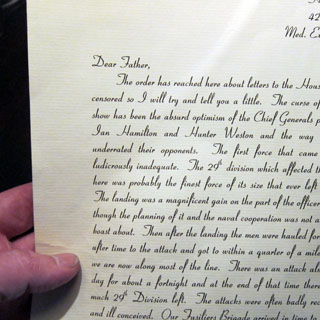 42
Med. Ex
Dear Father,
The order has reached here about letters to the Hous
censored so I will try and tell you a little. The curse of
show has been the absurd optimism of the Chief Generals p
Ian Hamilton and Hunter Weston and the way
underrated their opponents. The first force that came
ludicrously inadequate. The 29th division which affected th
here was probably the finest force of its size that ever left
The landing was a magnificent gain on the part of the officer
though the planning of it and the naval cooperation was not a
boast about. Then after the landing the men were hauled for
after time to the attack and got to within a quarter of a mile
we are now along most of the line. There was an attack al
day for about a fortnight and at the end of that time there
mach 29th Division left. The attacks were often badly rec
and ill conceived. Our Fusiliers Brigade arrived in time to